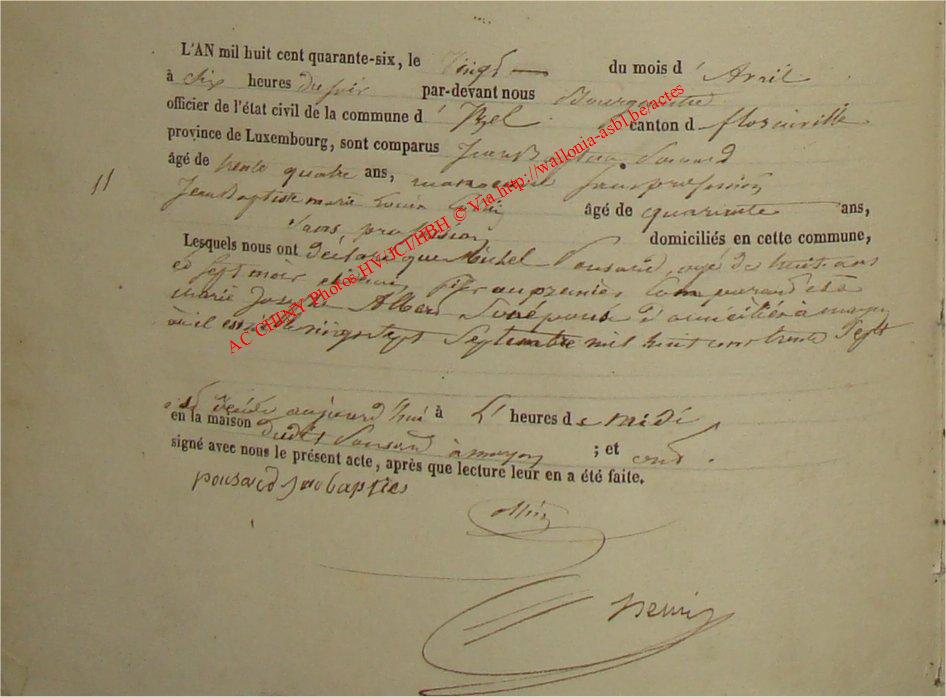 L'AN mil huit cent quarante-six, le vingt du mois d' Avril
à six heures du soir par-devant nous Bourgmestre
officier de l'état civil de la commune d' Izel canton d florenville
province de Luxembourg, sont comparus Jean Baptiste Ponsard
âgé de trente quatre ans, sans profession
Jean Baptiste marie Louis âgé de quarante ans,
sans profession domiciliés en cette commune,
Lesquels nous ont déclaré que Michel Ponsard, agé de huit ans
et sept mois fils au premier comparant et à
marie Joseph Albert Son epouse domicilié à moyen
où il est né le vingt sept Septembre mil huit cent trente sept
est décédé aujourd'hui à heures de midi
en la maison dudit Ponsard à moyen ; et ont
signé avec nous le présent acte, après que lecture leur en a été faite.
ponsard jeanbapties
henin
AC CHINY Photos HV/JCT/HBH © Via http://wallonia-asbl.be/actes